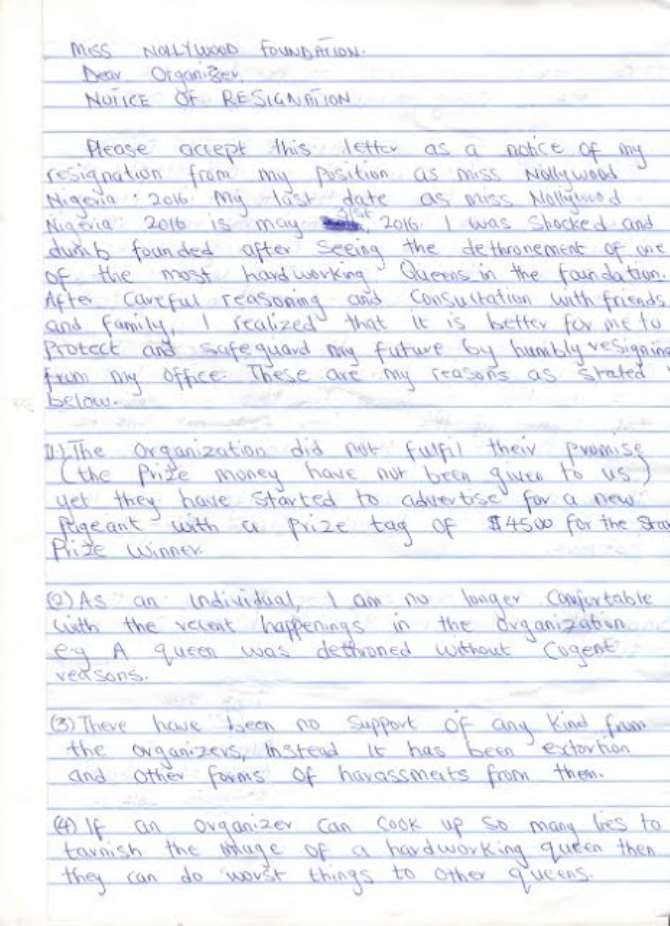 MISS NOLLYWOOD FOUNDATION.
Dear Organizer,
NOTICE OF RESIGNATION
Please accept this letter as a notice of my
resignation from my position as miss Nollywood
Nigeria 2016 My last date as miss Nollywood
Nigeria 2016 is may 31st, 2016. I was shocked and
dumb founded after seeing the dethronement of one
of the most hardworking Queens in the foundation.
After careful reasoning and consultation with friends
and family, I realized that it is better for me to
Protect and safeguard my future by humbly resigning
from my office These are my reasons as stated
below.
(1) The organization did not fulfil their promise
(the Prize money have not been given to us)
yet they have started to advertise for a new
Pageant with a prize tag of $4500 for the
Prize winner.
(2) As an individual, I am no longer comfortable
with the recent happenings in the organization
e.g A queen was dethroned without cogent
reasons.
(3) There have been no support of any kind from
the organizers, instead it has been extortion
and other forms of harassments from them.
(4) If an organizer can cook up so many lies to
tarnish the image of a hardworking queen then
they can do worst things to other queens.